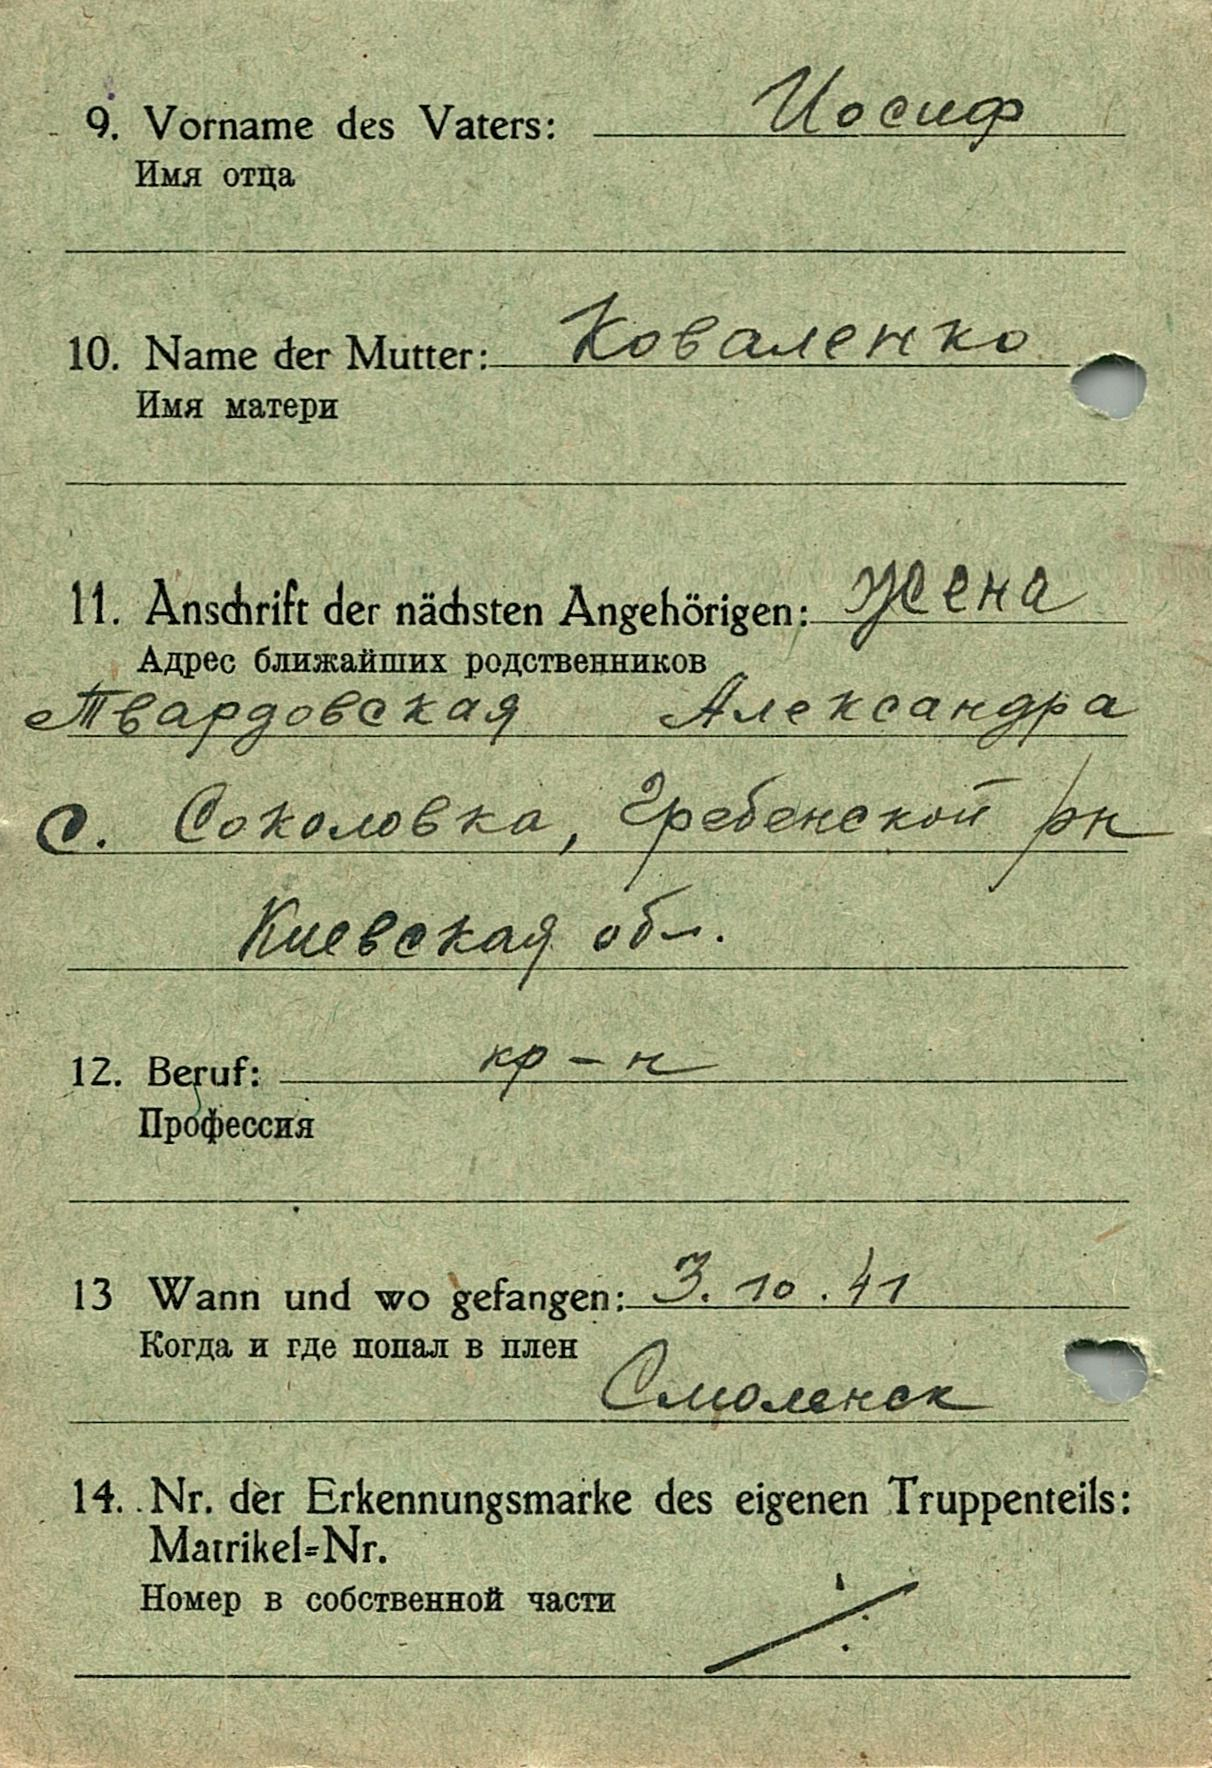 9. Vorname des Vaters: Иосиф
Имя отца
10. Name der Mutter: Коваленко
Имя матери
11. Anschrift der nächsten Angehörigen: жена
Адрес ближайших родственников
Твардовская Александра
с. Соколовка, Гребенской рн
Киевская обл.
12. Beruf: кр-н
Профессия
13 Wann und wo gefangen: 3.10.41
Когда и где попал в плен
Смоленск
14. Nr. der Erkennungsmarke des eigenen Truppenteils:
Matrikel=Nr.
Номер в собственной части